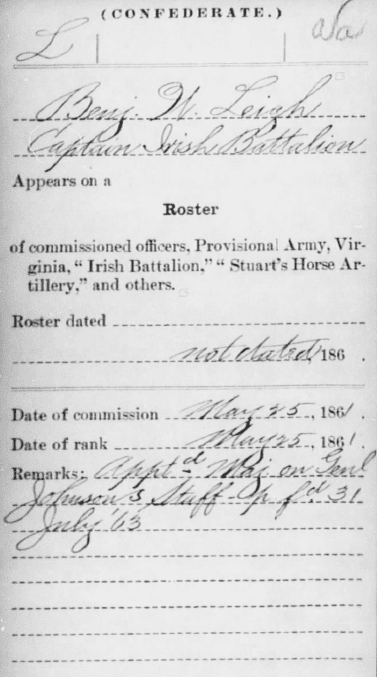 (CONFEDERATE.)
L Va
Benj. W. Leigh
Captain Irish Battalion
Appears on a
Roster
of commissioned officers, Provisional Army, Vir-
ginia, “ Irish Battalion,” “ Stuart's Horse Ar-
tillery,” and others.
Roster dated
not dated, 186 .
Date of commission May 25, 1861.
Date of rank May 25, 1861.
Remarks: Apptd Maj on Genl
Johnson's Staff
July '63